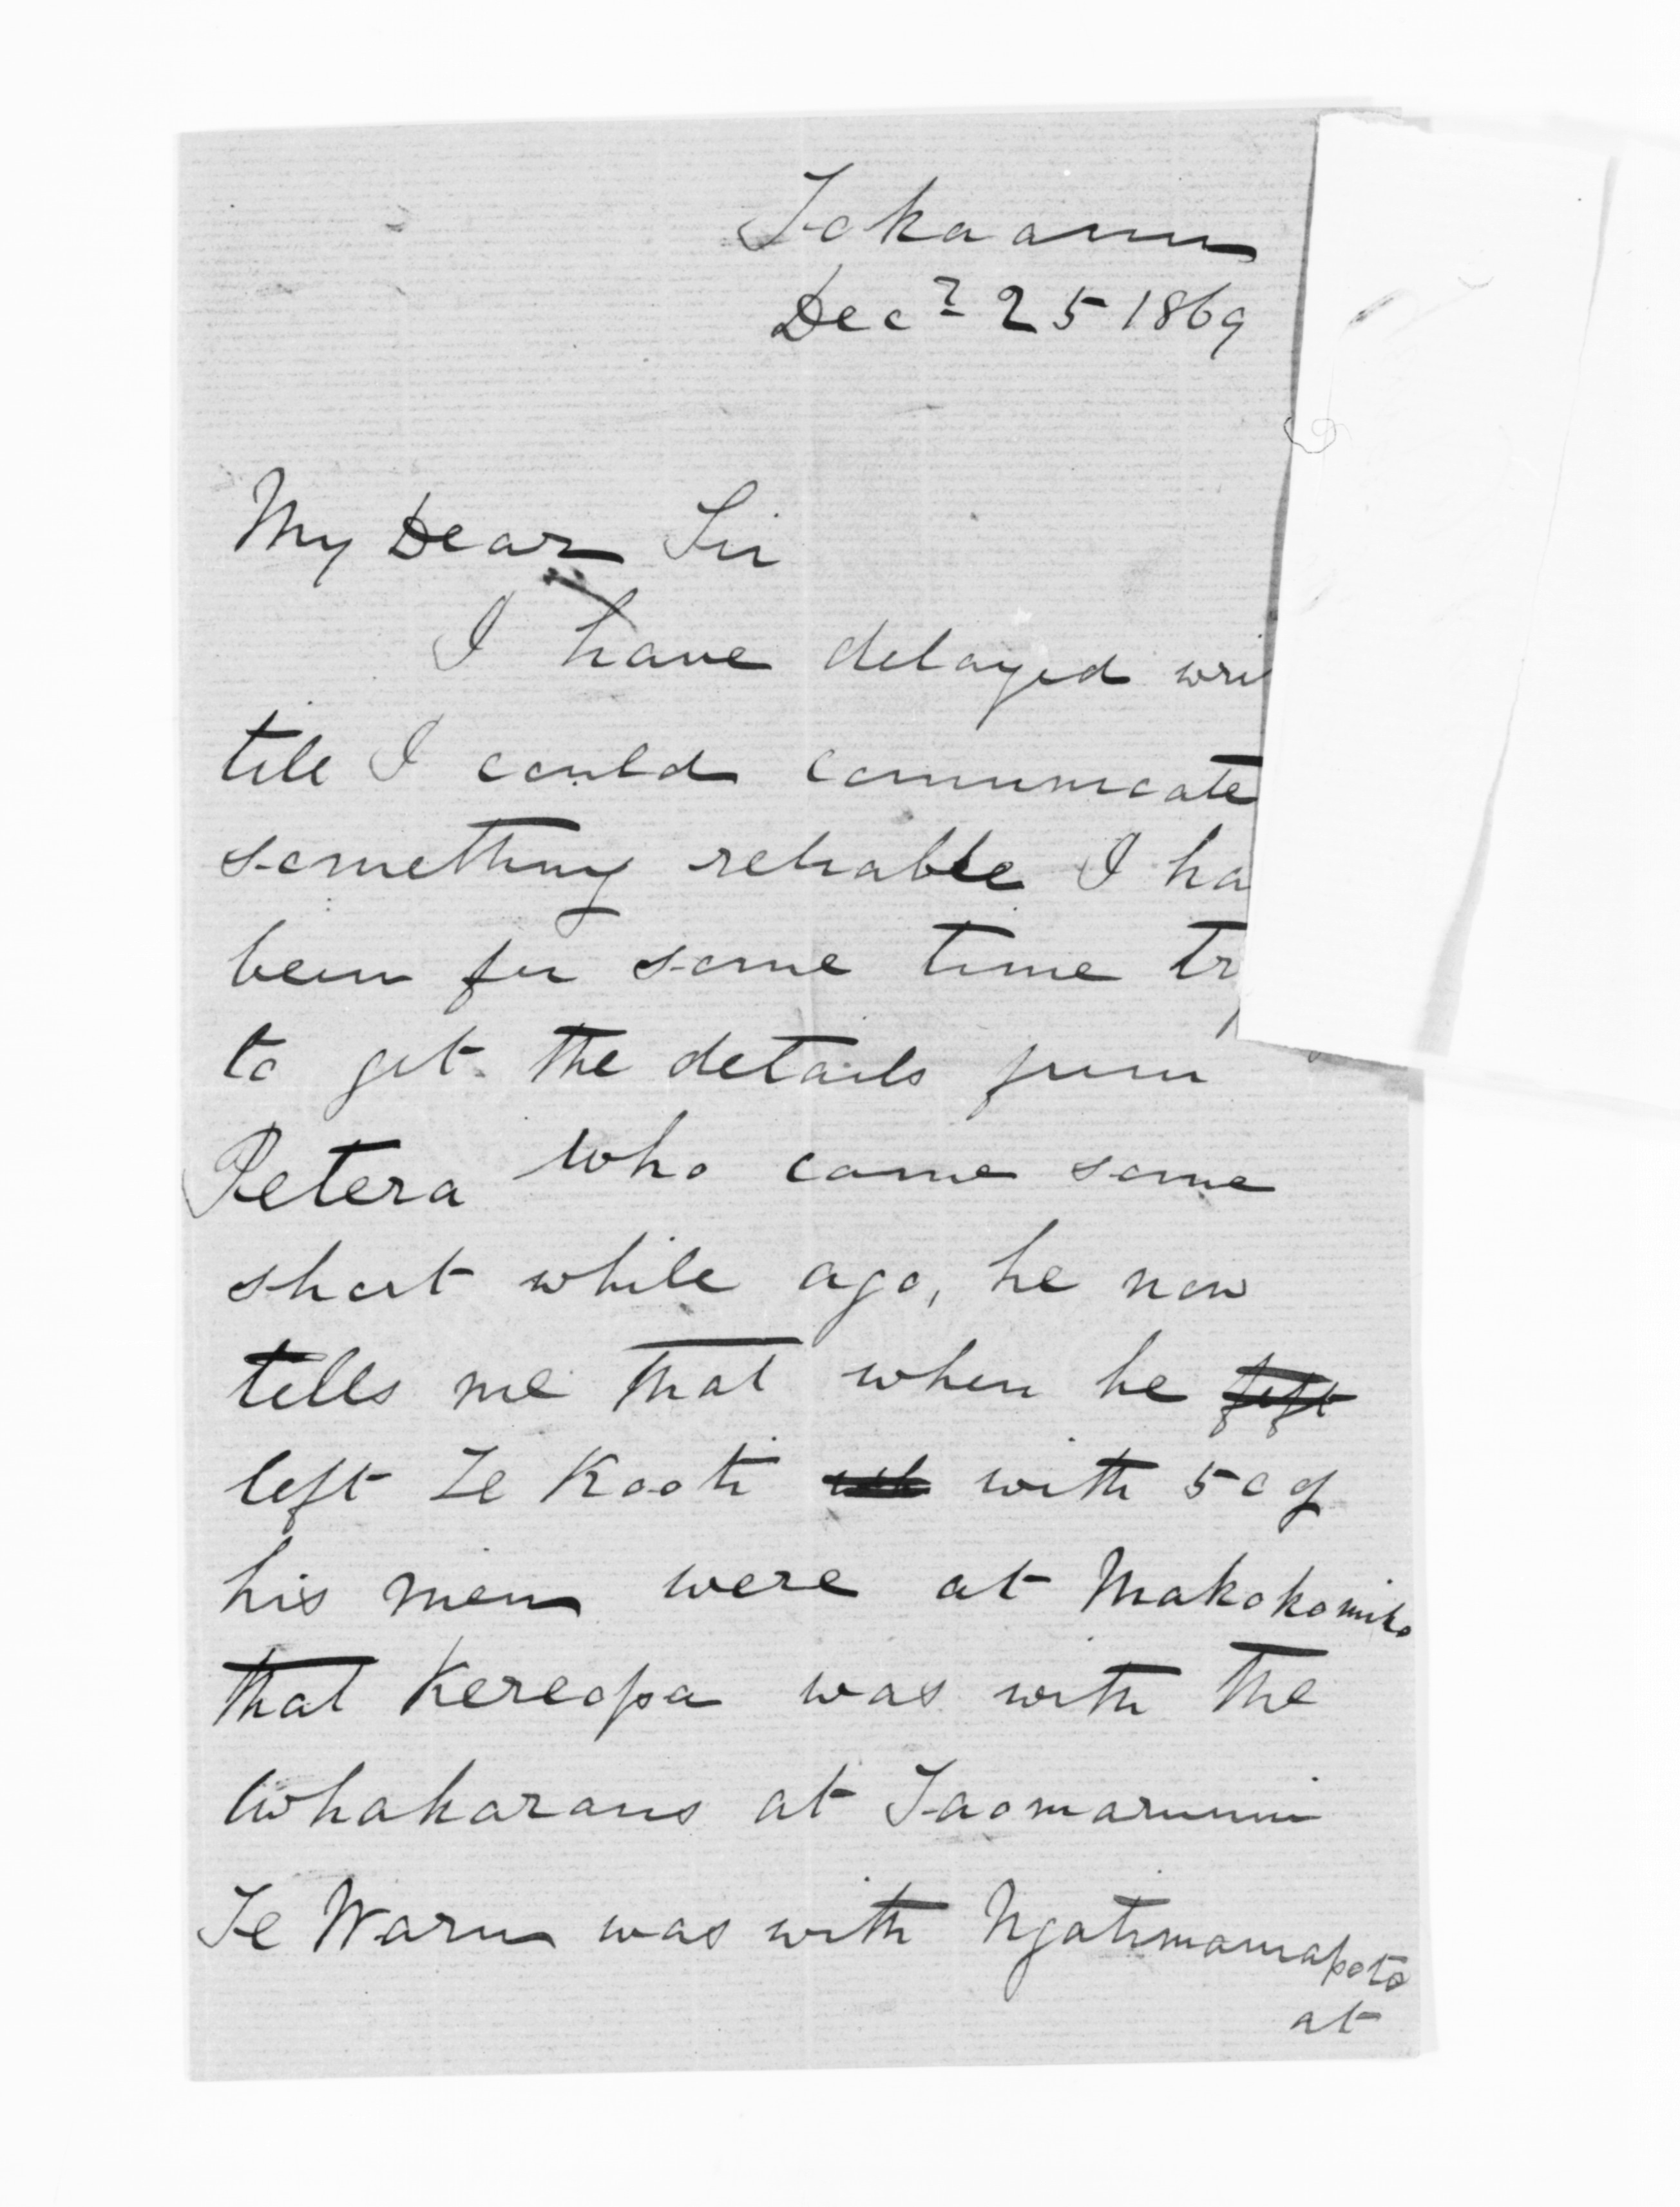 Tokaanu
Decr 25 1869
My Dear Sir
I have delayed wri
till I could communicate
something reliable I ha
been for some time tr
to get the details from
Petera who came some
short while ago, he now
tells me that when he left
left Te Kooti with 50 of
his men were at Makokomiko
that Kereopa was with the
Whakaraus at Taomarunui
Te Waru was with Ngatimaniapoto
at